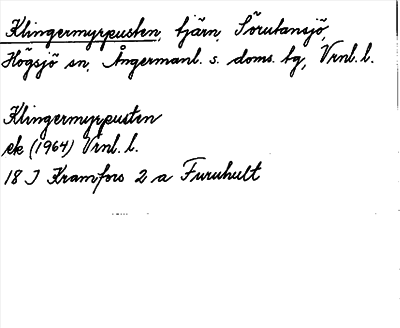 Klingermyrpusten, tjärn, Sörutansjö,
Högsjö sn, Ångermanl. s. doms. tg, Vrnl. l.
Klingermyrpusten
ek (1964) Vrnl. l.
18 J Kramfors 2 a Furuhult